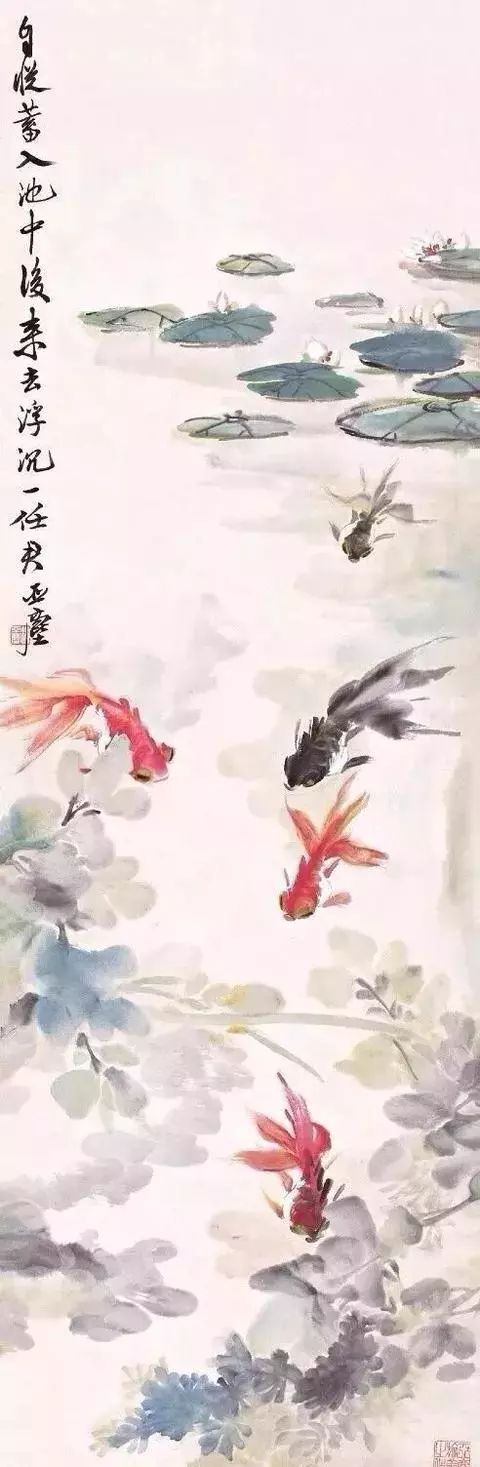 自从蓄入池中後来去浮沉一任君亚尘